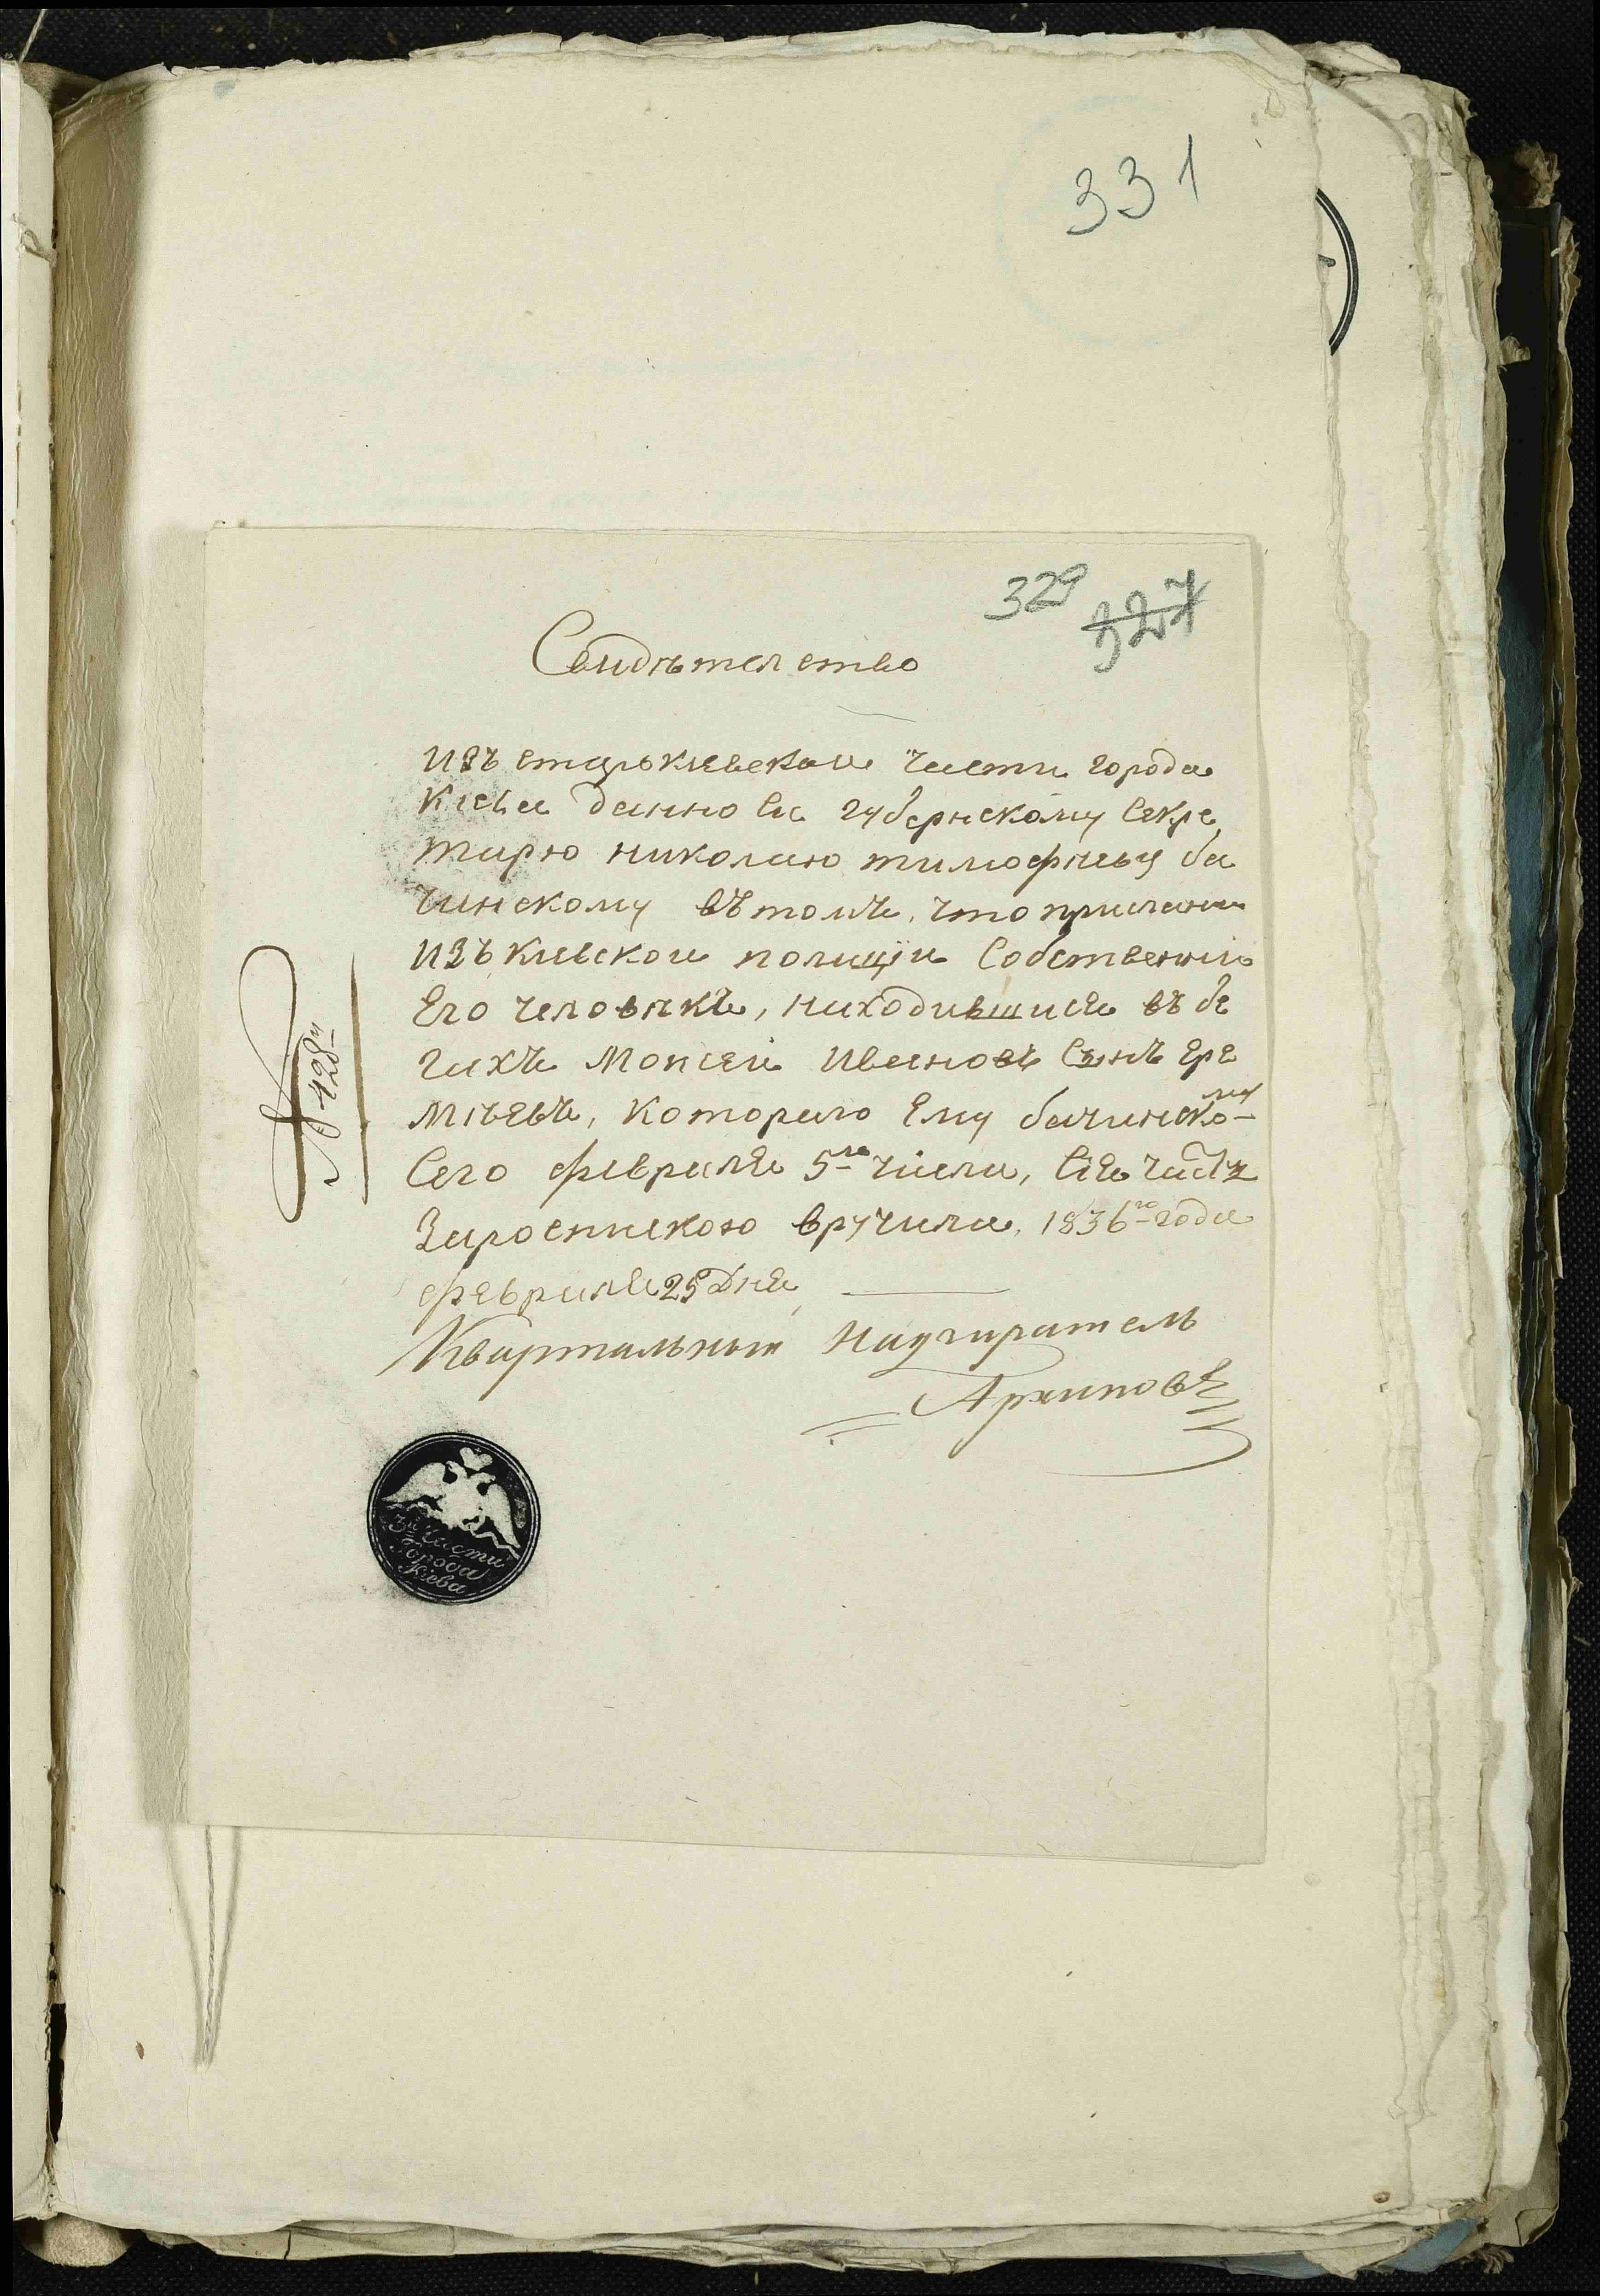 331
329
327
Свидѣтелство
Изъ старокіевской части города
Кіева данно сіе губернскому секре
тарю николаю тимофѣеву ба
чинскому въ томъ, что присланны
изъ кіевской полиціи собственный
Его человѣкъ, находившися въ бѣ
гахъ Моисей Ивановъ сынъ Ере
мѣевъ, которого Ему бачинскому
сего февраля 5го числа, сія часть
Зароспискою вручила. 1836го года
февраля 25 дня
Квартальный Надзиратель
Архиповъ
№ 428й
3й Части
Города
Кіева